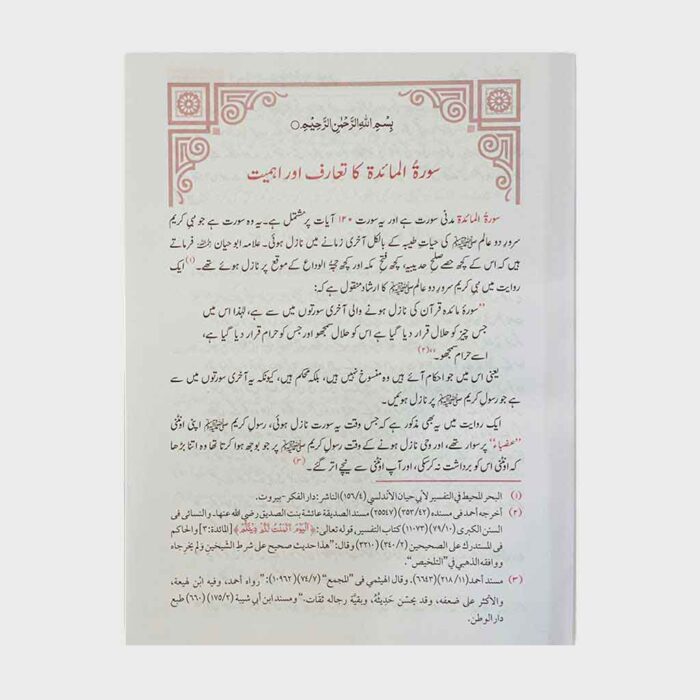 بِسْمِ اللهِ الرَّحْمٰنِ الرَّحِيْمِ
سورۃُ المائدۃ کا تعارف اور اہمیت
سورۃُ المائدۃ مدنی سورت ہے اور یہ سورت ۱۲۰ آیات پر مشتمل ہے۔ یہ وہ سورت ہے جو نبی کریم
سرورِ دو عالم ﷺ کی حیاتِ طیبہ کے بالکل آخری زمانے میں نازل ہوئی۔ علامہ ابو حیان رحمہ اللہ فرماتے
ہیں کہ اس کے کچھ حصے صلحِ حدیبیہ، کچھ فتحِ مکہ اور کچھ حجۃُ الوداع کے موقع پر نازل ہوئے تھے۔(۱) ایک
روایت میں نبی کریم سرورِ دو عالم ﷺ کا ارشاد منقول ہے کہ:
”سورۂ مائدہ قرآن کی نازل ہونے والی آخری سورتوں میں سے ہے، لہٰذا اس میں
جس چیز کو حلال قرار دیا گیا ہے اس کو حلال سمجھو اور جس کو حرام قرار دیا گیا ہے،
اسے حرام سمجھو۔“(۲)
یعنی اس میں جو احکام آئے ہیں وہ منسوخ نہیں ہیں، بلکہ محکم ہیں، کیونکہ یہ آخری سورتوں میں سے
ہے جو رسولِ کریم ﷺ پر نازل ہوئیں۔
ایک روایت میں یہ بھی مذکور ہے کہ جس وقت یہ سورت نازل ہوئی، رسولِ کریم ﷺ اپنی اونٹنی
”عضباء“ پر سوار تھے، اور وحی نازل ہونے کے وقت رسولِ کریم ﷺ پر جو بوجھ ہوا کرتا تھا وہ اتنا بڑھا
کہ اونٹنی اس کو برداشت نہ کر سکی، اور آپ اونٹنی سے نیچے اتر گئے۔(۳)
(۱) البحر المحيط في التفسير لأبي حيان الأندلسي (۱۵۶/۴) الناشر: دار الفكر-بيروت.
(۲) أخرجه أحمد في مسنده (۳۵۳/۴۲) (۲۵۵۴۷) مسند الصديقة عائشة بنت الصديق رضي الله عنها. والنسائي في
السنن الكبرى (۷۹/۱۰) (۱۱۰۷۳) كتاب التفسير، قوله تعالى: ﴿اَلْيَوْمَ اَكْمَلْتُ لَكُمْ دِيْنَكُمْ﴾ [المائدة:۳] والحاكم
في المستدرك على الصحيحين (۳۴۰/۲) (۳۲۱۰) وقال: ”هذا حديث صحيح على شرط الشيخين ولم يخرجاه
ووافقه الذهبي في ”التلخيص“.
(۳) مسند أحمد (۲۱۸/۱۱) (۶۶۴۳). وقال الهيثمي في ”المجمع“ (۷۴/۷) (۱۰۹۶۲): ”رواه أحمد، وفيه ابن لهيعة،
والأكثر على ضعفه، وقد يحسّن حديثُه، وبقيّة رجاله ثقات.“ ومسند ابن أبي شيبة (۱۷۵/۲) (۶۶۰) طبع
دار الوطن.